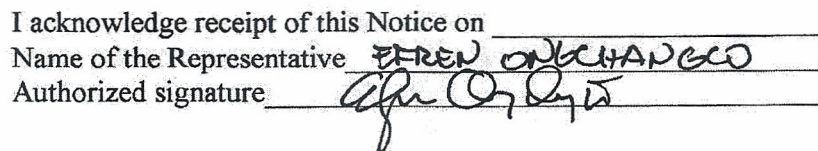 I acknowledge receipt of this Notice on
Name of the Representative EFREN ONGCHANGCO
Authorized signature